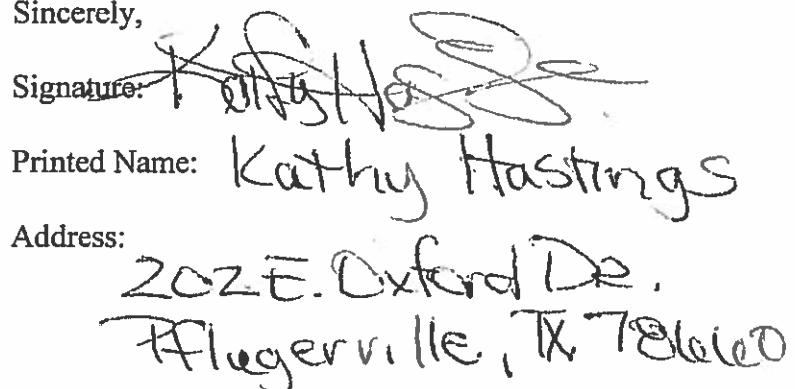 Sincerely,
Signature: Kathy Has
Printed Name: Kathy Hastings
Address:
202 E. Oxford Dr.
Pflugerville, TX 78660